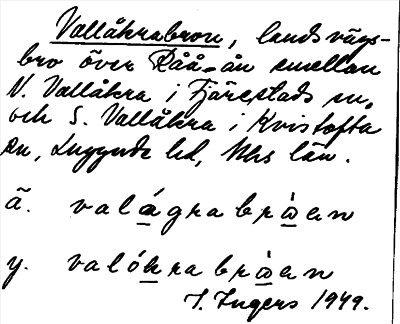 Vallåkrabron, landsvägs-
bro över Råå-ån emellan
N. Vallåkra i Fjärestads sn.
och S. Vallåkra i Kvistofta
sn, Luggude hd, Mhs län.
ä. valágrabrὼan
y. valókrabrὼan
I. Ingers 1949.